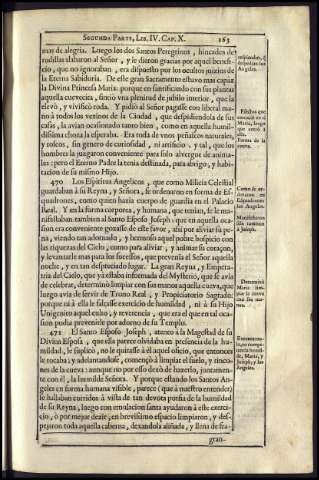 SEGUNDA PARTE, LIB. IV. CAP. X. 163
mas de alegria. Luego los dos Santos Peregrinos, hincados de
rodillas alabaron al Señor, y le dieron gracias por aquel benefi-
cio, que no ignoraban, era dispuesto por los ocultos juizios de
la Eterna Sabiduria. De este gran Sacramento estuvo mas capaz
la Divina Princesa Maria: porque en santificando con sus plantas
aquella cuevecita, sintiò vna plenitud de jubilo interior, que la
elevò, y vivificò toda. Y pidiò al Señor pagasse con liberal ma-
no à todos los vezinos de la Ciudad, que despidiendola de sus
casas, la avian ocasionado tanto bien, como en aquella humil-
dissima choza la esperaba. Era toda de vnos peñascos naturales,
y toscos, sin genero de curiosidad, ni artificio, y tal, que los
hombres la juzgaron conveniente para solo alvergue de anima-
les; pero el Eterno Padre la tenia destinada, para abrigo, y habi-
tacion de su mismo Hijo.
470 Los Espiritus Angelicos, que como Milicia Celestial
guardaban à su Reyna, y Señora, se ordenaron en forma de Es-
quadrones, como quien hazia cuerpo de guardia en el Palacio
Real. Y en la forma corporea, y humana, que tenian, se le ma-
nifestaban tambien al Santo Esposo Joseph: que en aquella oca-
sion era conveniente gozasse de este favor, assi por aliviar su pe-
na, viendo tan adornado, y hermoso aquel pobre hospicio con
las riquezas del Cielo; como para aliviar, y animar su coraçon,
y levantarle mas para los sucessos, que prevenia el Señor aquella
noche, y en tan despreciado lugar. La gran Reyna, y Empera-
triz del Cielo, que yà estaba informada del Mysterio, que se avia
de celebrar, determinò limpiar con sus manos aquella cueva, que
luego avia de servir de Trono Real, y Propiciatorio Sagrado;
porque ni à ella le faltasse exercicio de humildad, ni à su Hijo
Unigenito aquel culto, y reverencia, que era el que en tal oca-
sion podia prevenirle por adorno de su Templo.
471 El Santo Esposo Joseph, atento à la Magestad de su
Divina Esposa, que ella parece olvidaba en presencia de la hu-
mildad, le suplicò, no le quitasse à èl aquel oficio, que entonces
le tocaba; y adelantandose, començò à limpiar el suelo, y rinco-
nes de la cueva: aunque no por esso dexò de hazerlo, juntamen-
te con èl, la humilde Señora. Y porque estando los Santos An-
geles en forma humana visible, parece (que à nuestro entender)
se hallaran corridos à vista de tan devota porfia de la humildad
de su Reyna; luego con emulacion santa ayudaron à este exerci-
cio, ò por mejor dezir, en brevissimo espacio limpiaron, y des-
pejaron toda aquella caberna, dexandola aliñada, y llena de fra-
gran-
Forma de la cueva.
Como se ordenaron en Esquadrones los Angeles.
Manifestaronse tambien à Joseph.
Determinò Maria limpiar la cueva con sus manos.